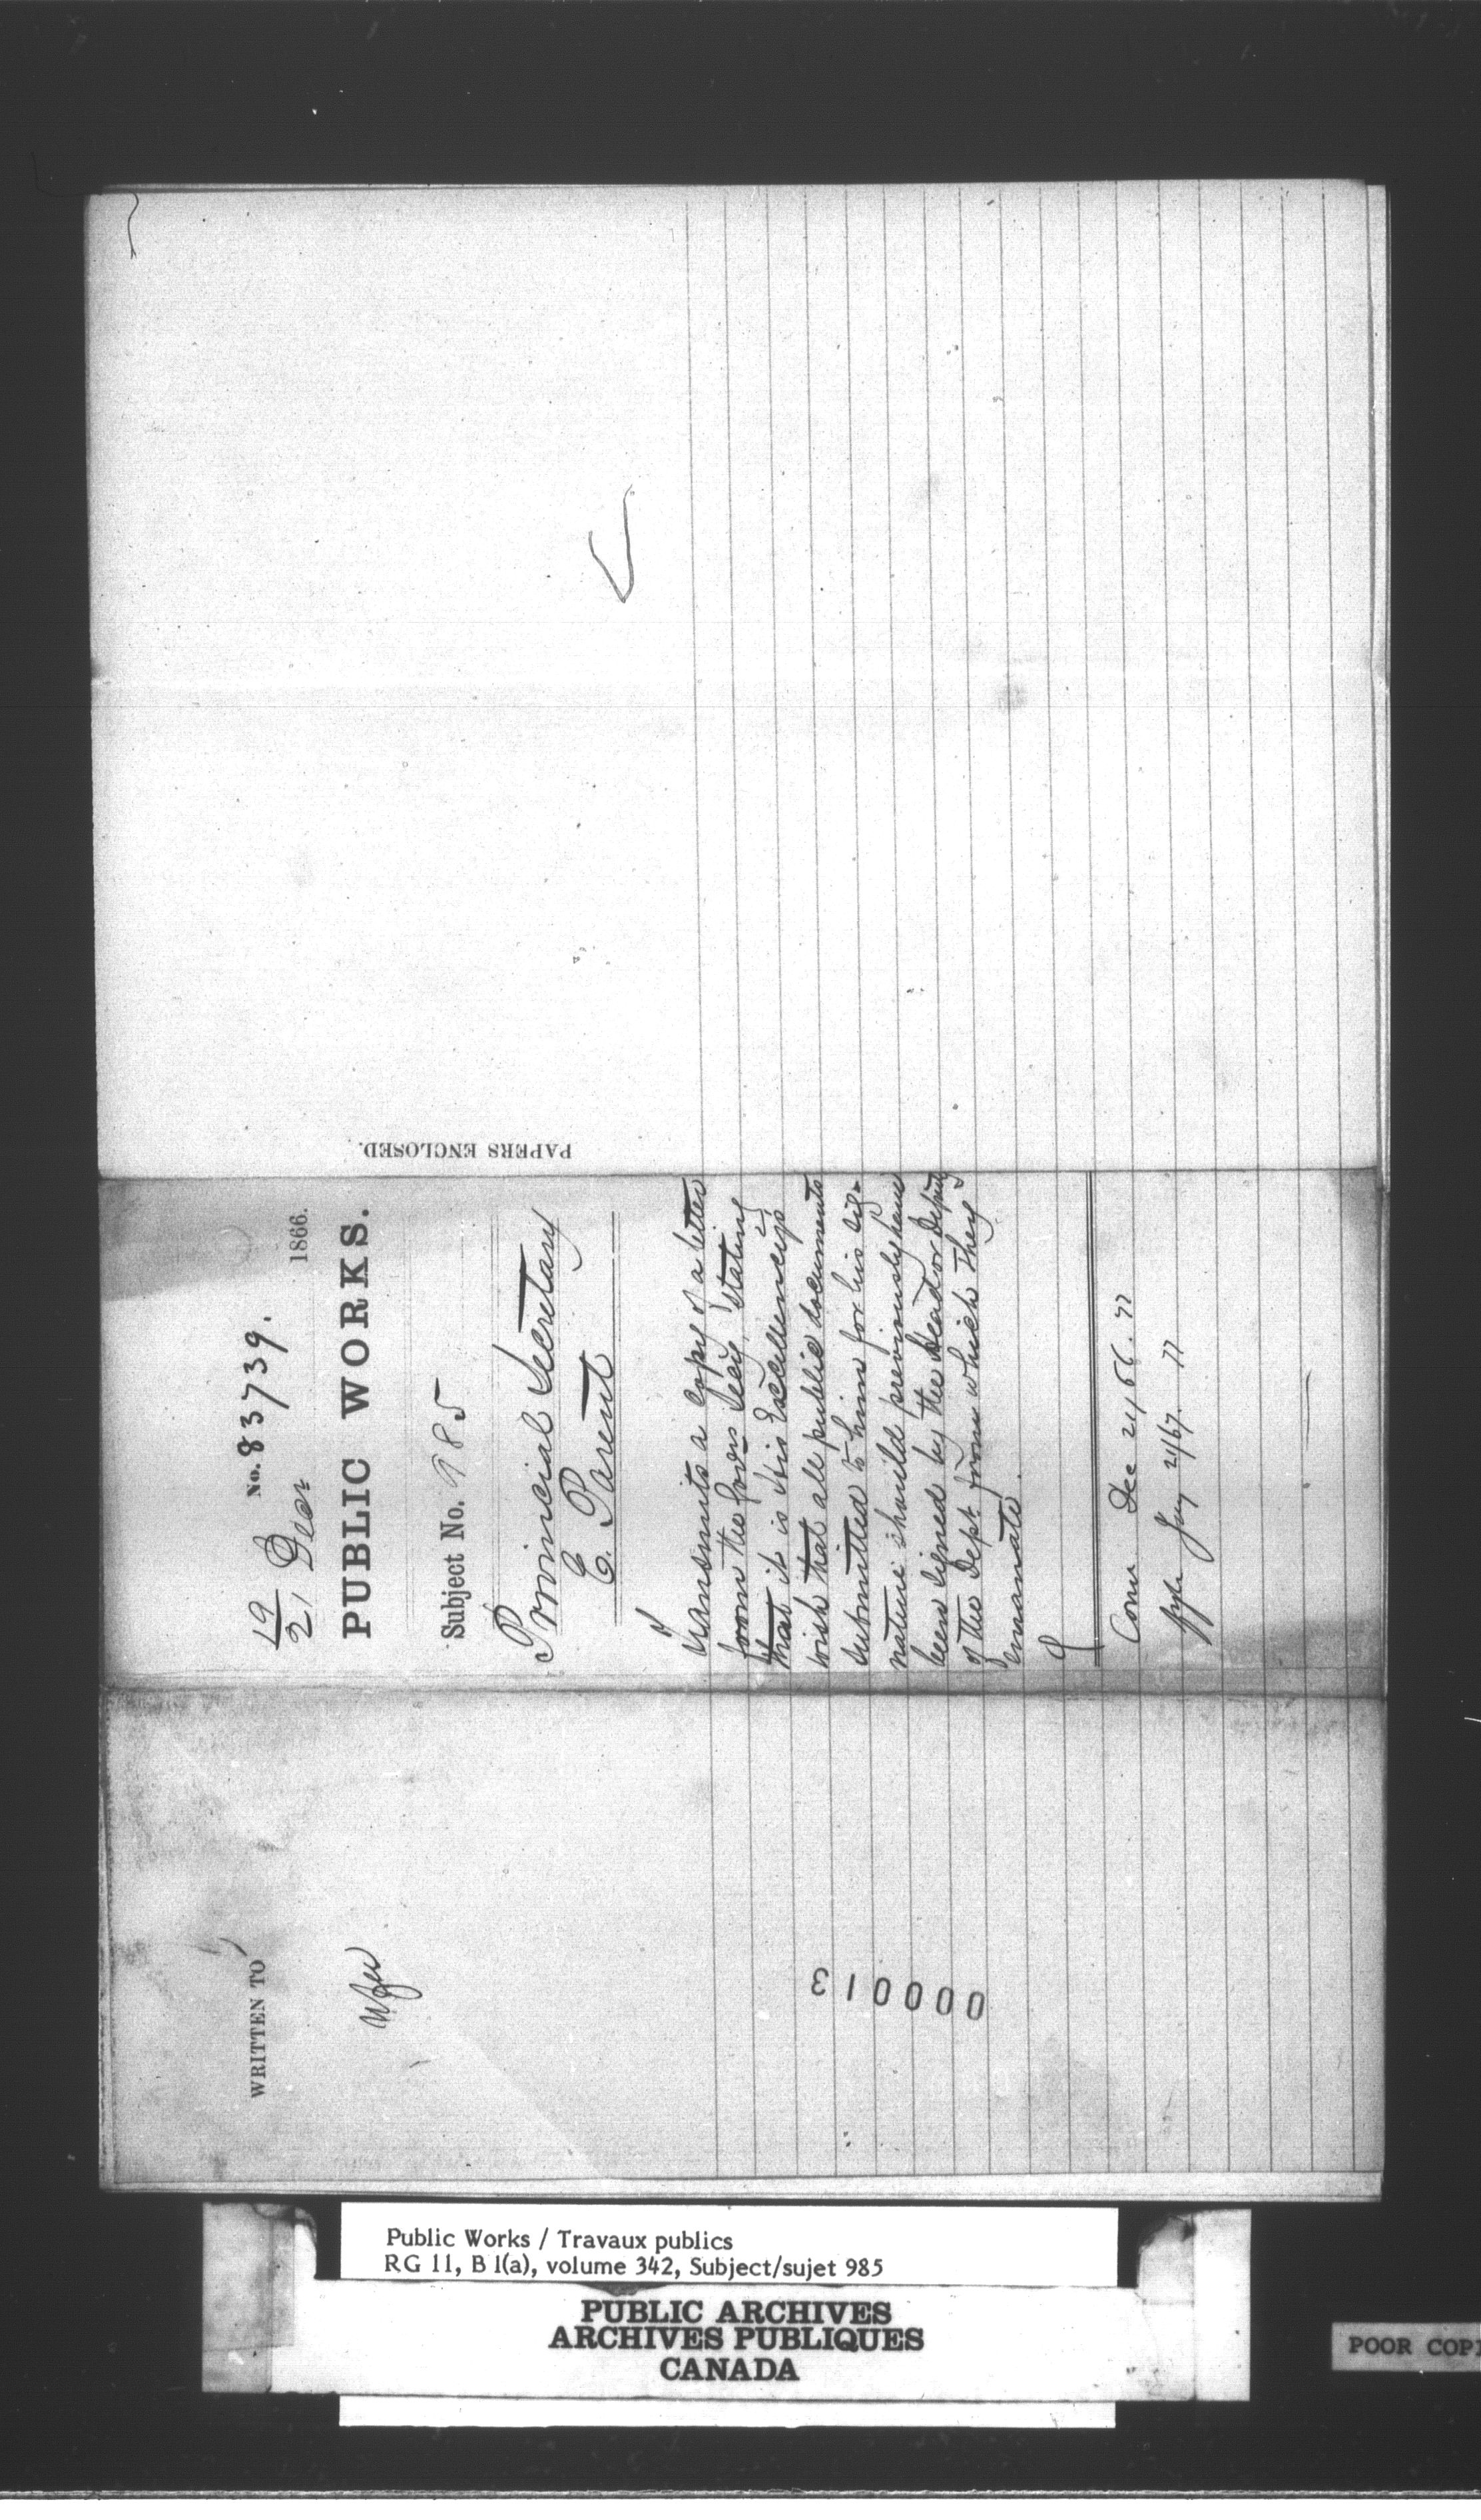 No. 83739.
19
21 Decr 1866.
PUBLIC WORKS.
Subject No. 985
Provincial Secretary
E. Parent
Transmits a copy of a letter
from the Govrs Secy, stating
that it is His Excellency's
wish that all public documents
submitted to him for his sig-
nature should previously have
been signed by the Head or Deputy
of the Dept. from which they
emanate.
Comr Dec 21/66.
Jany 21/67.
PAPERS ENCLOSED.
WRITTEN TO
000013
Public Works / Travaux publics
RG 11, B 1(a), volume 342, Subject/sujet 985
PUBLIC ARCHIVES
ARCHIVES PUBLIQUES
CANADA
POOR COP